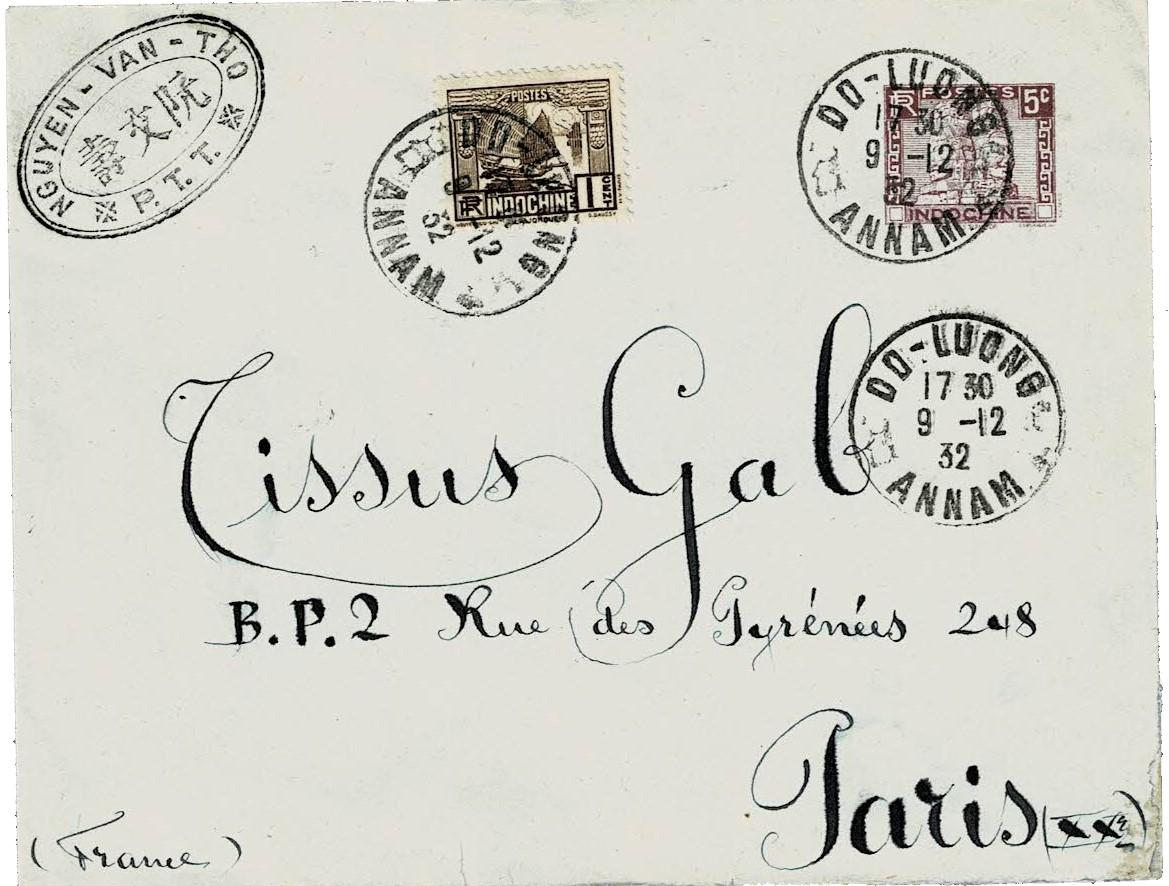 NGUYEN-VAN-THO
壽文阮
P.T.T.
POSTES
RF INDOCHINE 1
CENT
DO-LUONG
9 -12
32
ANNAM
RF POSTES 5c
INDOCHINE
DO-LUONG
17 30
9 -12
32
ANNAM
DO-LUONG
17 30
9 -12
32
ANNAM
Tissus Gal
B.P.2 Rue des Pyrénées 248
Paris (XXe)
(France)